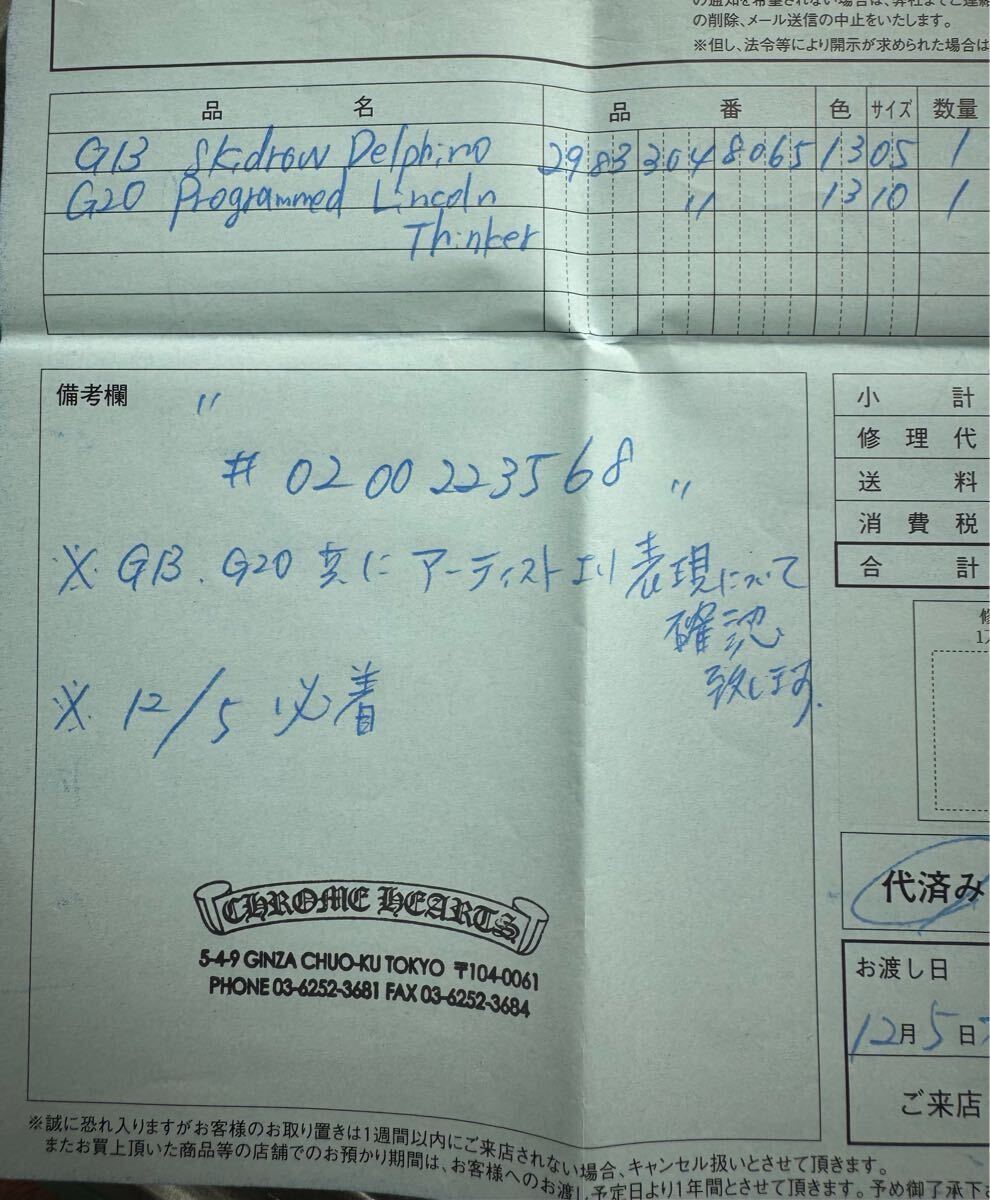 の通知を希望されない場合は、弊社までご連絡
の削除、メール送信の中止をいたします。
※但し、法令等により開示が求められた場合は
品 名 品 番 色 サイズ 数量
G13 Skidrow Delphino 2983 304 8065 13 05 1
G20 Programmed Lincoln 〃 13 10 1
Thinker
備考欄
〃
#0200223568 〃
※ G13、G20 共に アーティストより表現について
確認
致します。
※ 12/5 必着
小 計
修 理 代
送 料
消 費 税
合 計
代済み
お渡し日
12月5日
ご来店
CHROME HEARTS
5-4-9 GINZA CHUO-KU TOKYO 〒104-0061
PHONE 03-6252-3681 FAX 03-6252-3684
※誠に恐れ入りますがお客様のお取り置きは1週間以内にご来店されない場合、キャンセル扱いとさせて頂きます。
またお買上頂いた商品等の店舗でのお預かり期間は、お客様へのお渡し予定日より1年間とさせて頂きます。予め御了承下